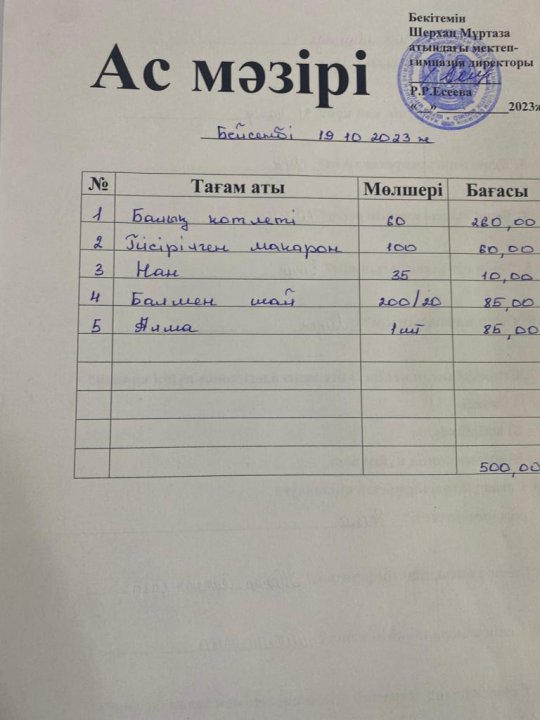 Бекітемін
Шерхан Мұртаза
атындағы мектеп-
гимназия директоры
Р.Р.Есеева
«__»__________2023ж
Ас мәзірі
Бейсенбі 19 10 2023 ж
№ Тағам аты Мөлшері Бағасы
1 Балық котлеті 60 260,00
2 Пісірілген макарон 100 60,00
3 Нан 35 10,00
4 Балмен шай 200/20 85,00
5 Алма 1 шт 85,00
500,00